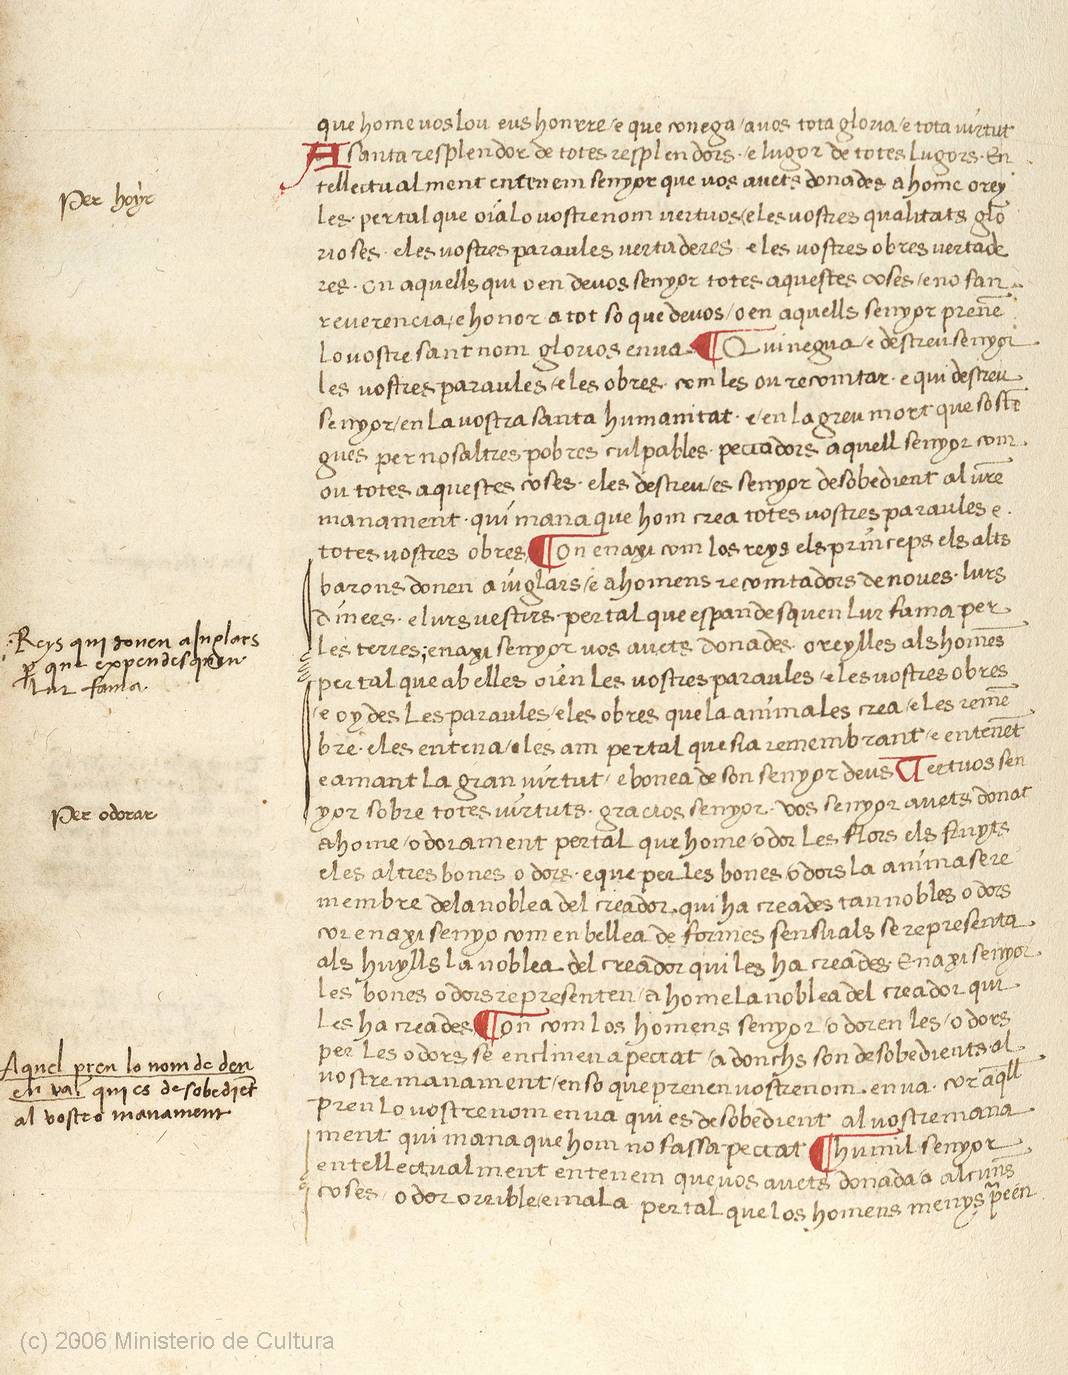 que home uos lou eus honrre / e que conega / a uos tota gloria / e tota uirtut
A santa resplendor de totes resplendors · e lugor de totes lugors · En
Per hoyr
tellectualment entenem senyor que uos auets donades a home orey
les · per tal que oia lo uostre nom uertuos / e les uostres qualitats glo
rioses · e les uostres paraules uertaderes · e les uostres obres uertade
res · On aquells qui oen de uos senyor totes aquestes coses / e no fan
reuerencia / e honor a tot so que de uos / oen aquells senyor prenē
lo uostre sant nom glorios en ua ¶ Qui negua · e descreu senyor
les uostres paraules / e les obres · com les ou recomtar · e qui descreu
senyor / en la uostra santa humanitat · e / en la greu mort que sostē
gues per nosaltres pobres culpables · peccadors aquell senyor com
ou totes aquestes coses · e les descreu / es senyor desobedient al ūre
manament · qui mana que hom crea totes uostres paraules e
totes uostres obres ¶ On enaxi com los reys els princeps els alts
barons donen a iuglars / e a homens recomtadors de noues · lurs
diners · e lurs uestirs · per tal que espandesquen lur fama per
Reys qui donen a Juglars
ꝑ que expendesquen
lur fama.
les terres; enaxi senyor uos auets donades · oreylles als homēs
per tal que ab elles oien les uostres paraules / e les uostres obres
/ e oydes les paraules / e les obres que la anima les crea / e les remē
bre · e les entena / e les am per tal que sia remembrant / e entenēt
e amant la gran uirtut / e bonea de son senyor deus Uertuos sen
yor sobre totes uirtuts · gracios senyor · Vos senyor auets donat
Per odorar
a home / odorament per tal que home / odor les flors els fruyts
e les altres bones odors · e que per les bones / odors la anima sere
membre de la noblea del creador qui ha creades tan nobles odors
cor enaxi senyo com en bellea de formes sensuals se representa
als huylls la noblea del creador qui les ha creades · Enaxi senyor
les bones odors representen / a home la noblea del creador qui
les ha creades ¶ On com los homens senyor / odoren les / odors
per les odors se enclinen a peccat / a donchs son desobedients al
uostre manament / en so que prenen uostre nom en ua · cor aq̄ll
Aquel pren lo nom de deu
en va. qui es de sobediēt
al vostro manament
pren lo uostre nom en ua qui es desobedient al uostre mana
ment qui mana que hom no fassa peccat ¶ humil senyor
entellectualment entenem que uos auets donada / a alcuns
coses / odor orrible / e mala per tal que los homens menys p̄een
(c) 2006 Ministerio de Cultura